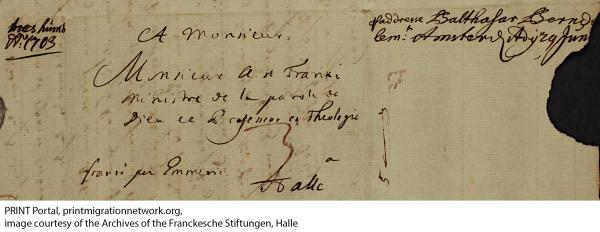 A Monsieur
Monsieur A. H. Franki
Ministre de la parole de
Dieu et Professeur en Theologie
franco per Emmeric
a
Halle
1703
p addresse Balthasar
Amsterd
PRINT Portal, printmigrationnetwork.org,
image courtesy of the Archives of the Franckesche Stiftungen, Halle